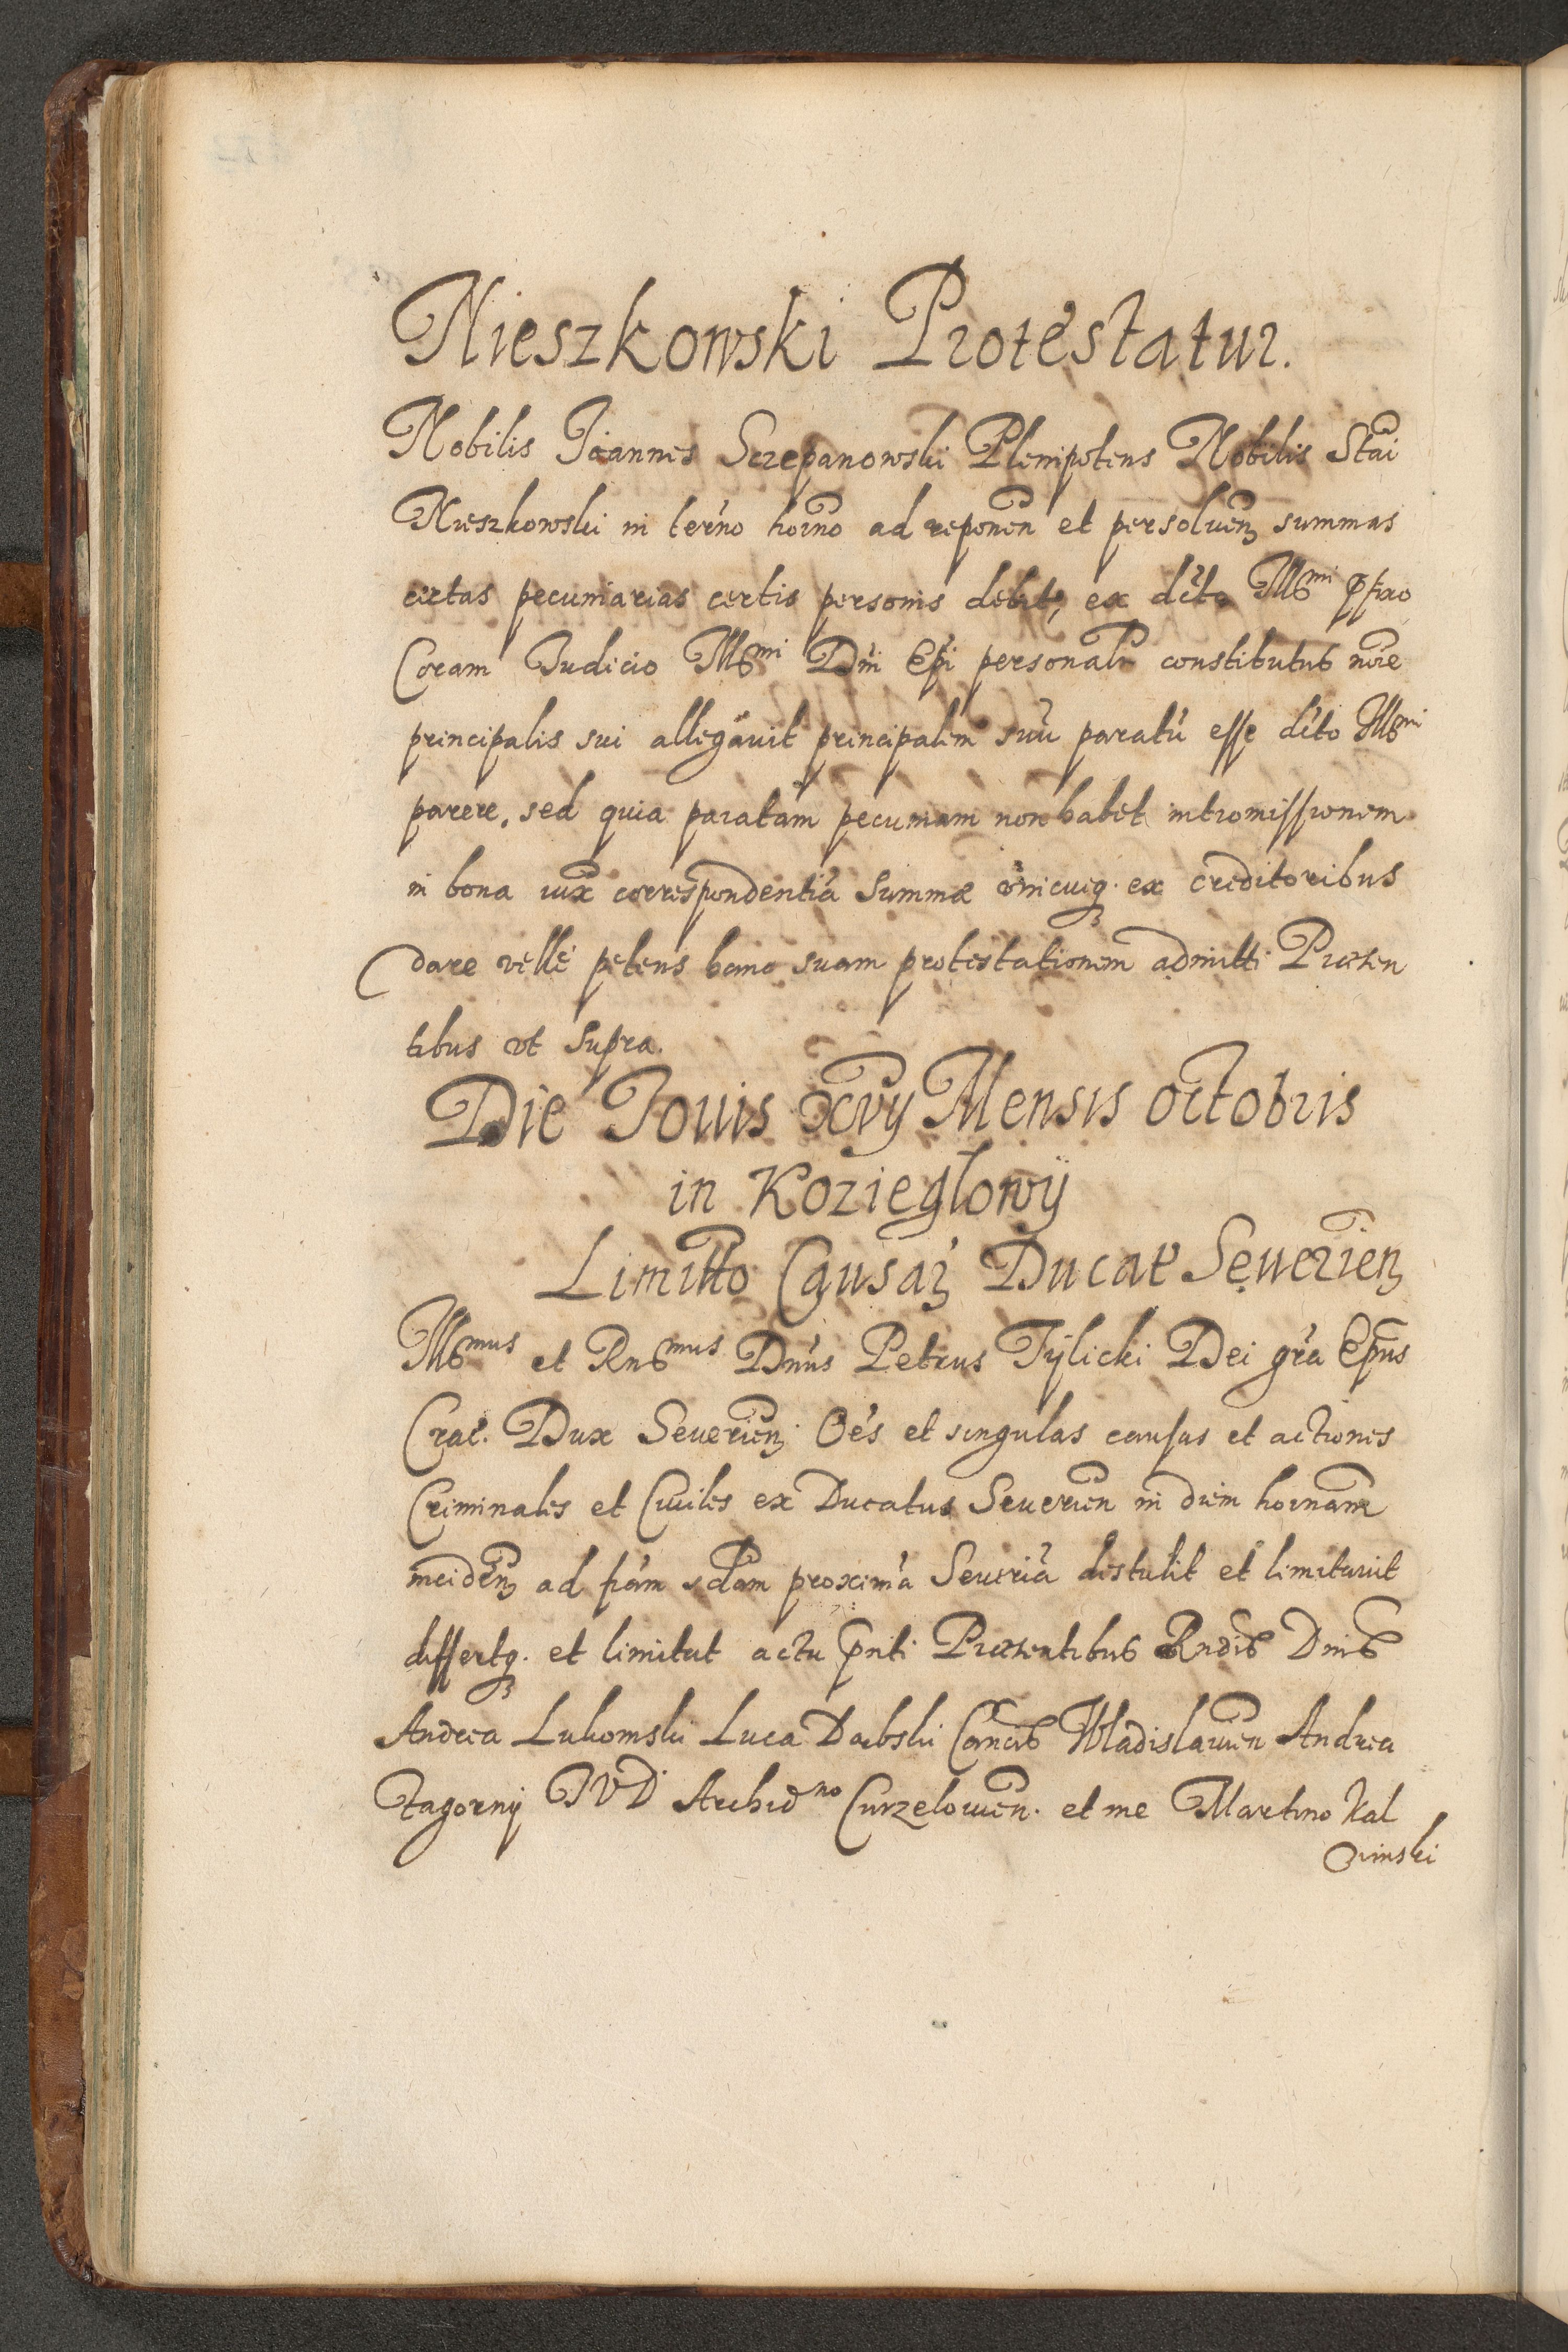 Nieszkowski Protestatur.
Nobilis Joannes Sczepanowski Plenipotens Nobilis Stai
Nieszkowski in termo horno ad reponen et persoluen summas
certas pecuniarias certis personis debit, ex dcto Illmi pfixo
Coram Judicio Illmi Dni Epi personalr constitutus noie
principalis sui allegauit principalem suu paratu esse dcto Illmi
parere, sed quia paratam pecuniam non habet intromissionem
in bona iux correspondentia summæ vnicuiq. ex creditoribus
dare velle petens hanc suam protestationem admitti Præsen
tibus vt supra.
Die Jouis xvij Mensis octobris
in Kozieglowÿ
Limitto Causaz Ducat Seuerien
Illmus et Rndmus Dnus Petrus Tÿlicki Dei gra Epus
Crac. Dux Seuerien Oes et singulas causas et actiones
Criminales et Ciuiles ex Ducatus Seuerien in diem hornam
inciden ad fiam scdam proxima Seueria distulit et limitauit
differtq. et limitat actu pnti Præsentibus Rndis Dnis
Andrea Lukomski Luca Dabski Cancis Wladislauien Andrea
Zagorny JVD Archidno Curzelouien. et me Martino Kal
Oinski